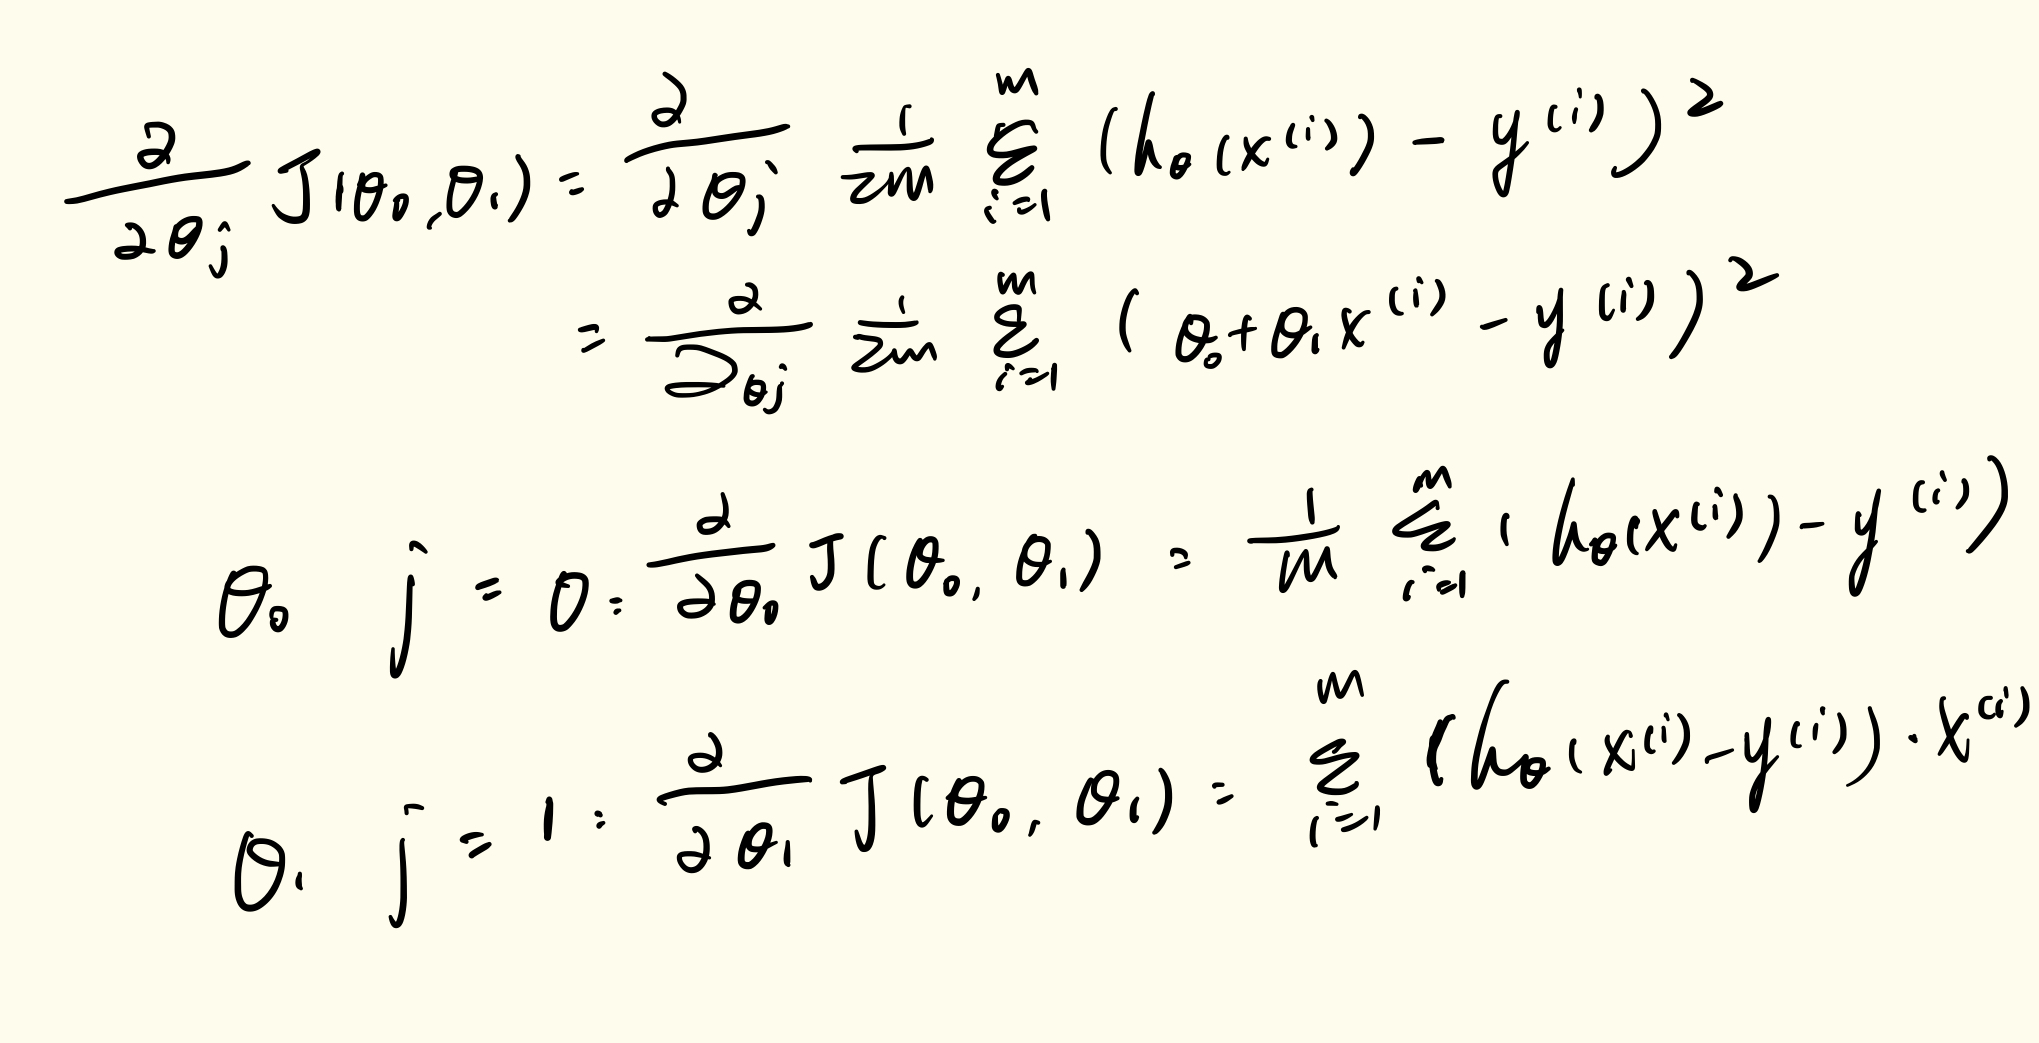 ∂/∂θⱼ J(θ₀,θ₁) = ∂/∂θⱼ 1/2m ∑ᵢ₌₁ᵐ (h_θ(x⁽ⁱ⁾) - y⁽ⁱ⁾)²
= ∂/∂θⱼ 1/2m ∑ᵢ₌₁ᵐ (θ₀+θ₁x⁽ⁱ⁾ - y⁽ⁱ⁾)²
θ₀ j = 0: ∂/∂θ₀ J(θ₀, θ₁) = 1/m ∑ᵢ₌₁ᵐ (h_θ(x⁽ⁱ⁾) - y⁽ⁱ⁾)
θ₁ j = 1: ∂/∂θ₁ J(θ₀, θ₁) = ∑ᵢ₌₁ᵐ (h_θ(x⁽ⁱ⁾ - y⁽ⁱ⁾) · x⁽ⁱ⁾